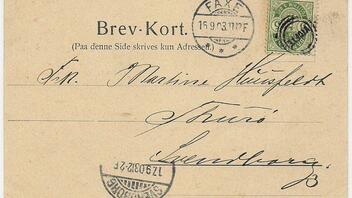 Brev-Kort.
(Paa denne Side skrives kun Adressen.)
FAXE
15.9.03.11-12F
Frk. Martine Huusfeldt
Thurø
Svendborg.
SVENDBORG
17.9.03.12-2F